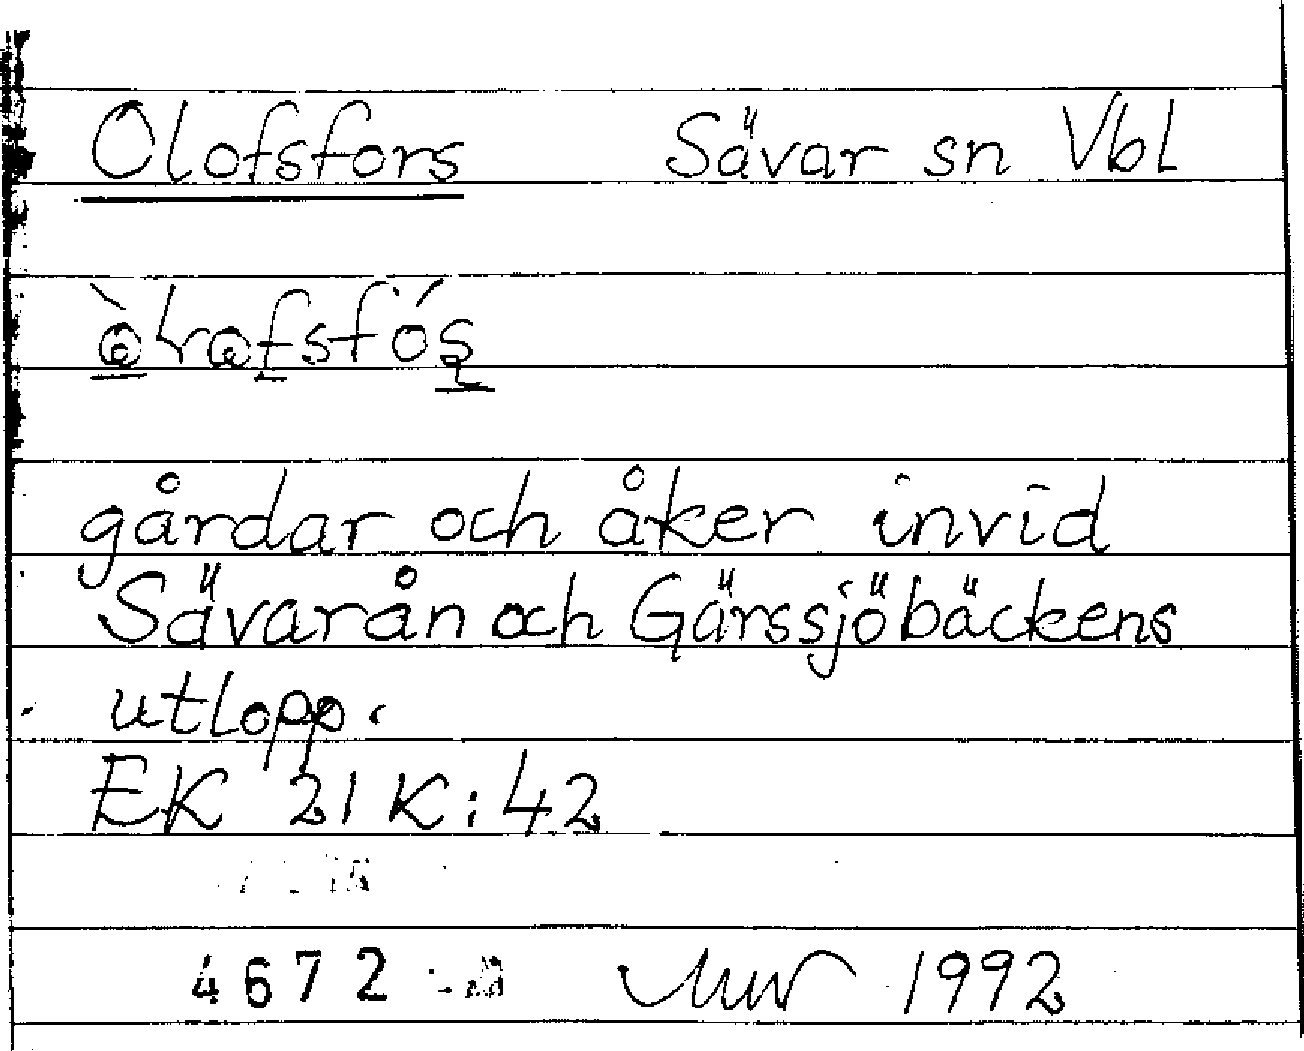 Olofsfors Sävar sn Vbl
gårdar och åker invid
Sävarån och Gärssjöbäckens
utlopp.
EK 21 K:42
4672 1992